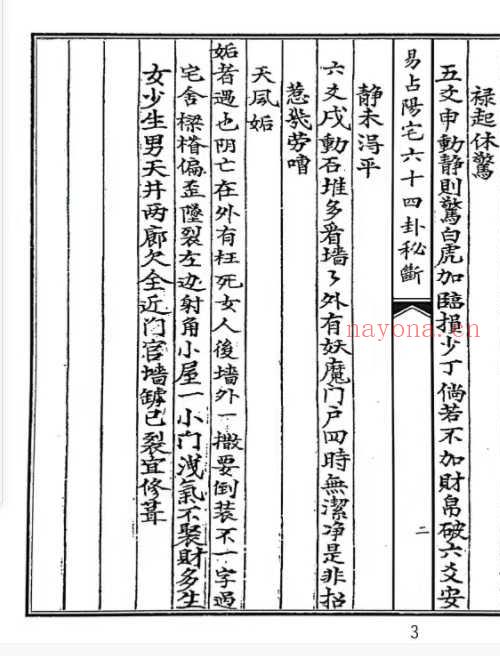 禄起休驚
五爻申動靜則驚白虎加臨損少丁倘若不加財帛破六爻安
易占陽宅六十四卦秘斷
二
静未淂平
六爻戌動石堆多看墙々外有妖魔门户四時無潔净是非招
惹幾劳嘈
天凨姤
姤者遇也阴亡在外有枉死女人後墙外一撒要倒装不一字過
宅舍樑楷偏歪墜裂左边射角小屋一小门洩氣不聚財多生
女少生男天井两廊欠全近门官墙罅已裂宜修葺
nayona.cn
3